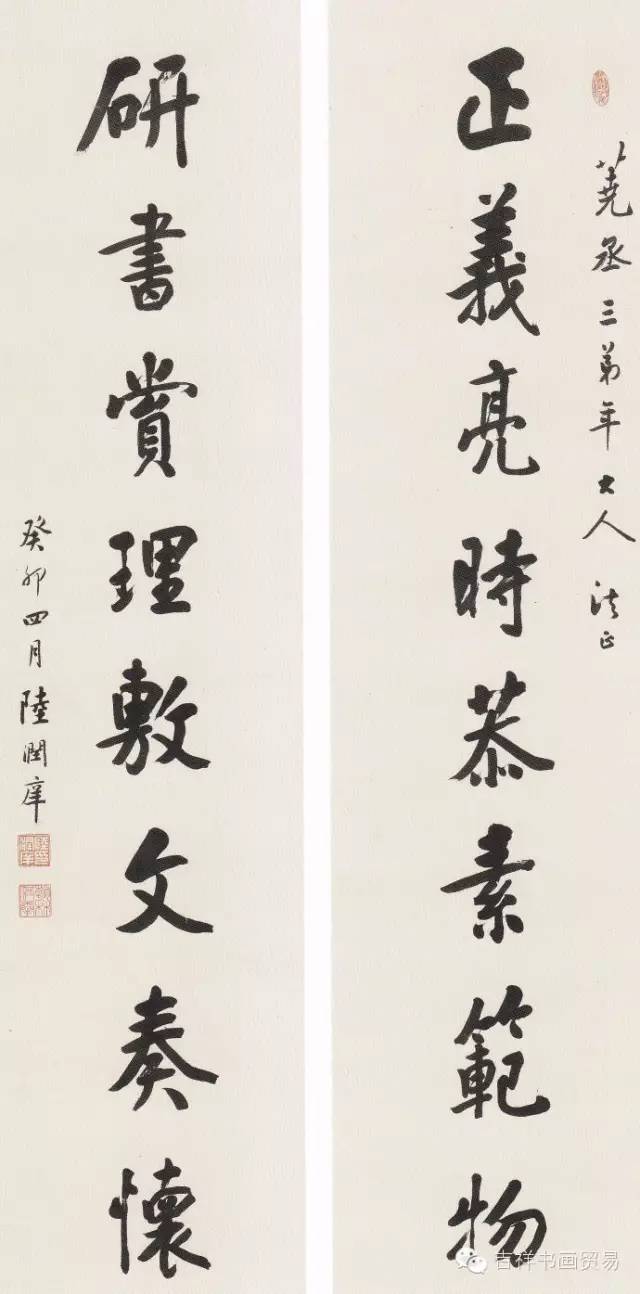 蕘丞三弟年大人 法正
正義亮時恭素範物
研書賞理敷文奏懷
癸卯四月陸潤庠
吉祥书画贸易